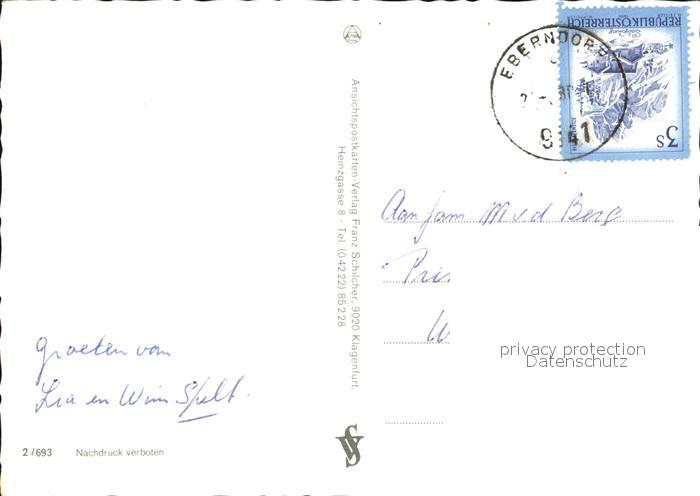 REPUBLIK ÖSTERREICH
3S
EBERNDORF
9141
Ansichtspostkarten-Verlag Franz Schilcher, 9020 Klagenfurt,
Heinzgasse 8 · Tel. (0 42 22) 85 2 28
Aan fam M v d Berg
Pri
W
privacy protection
Datenschutz
Groeten van
Lia en Wim Spelt.
2/693 Nachdruck verboten